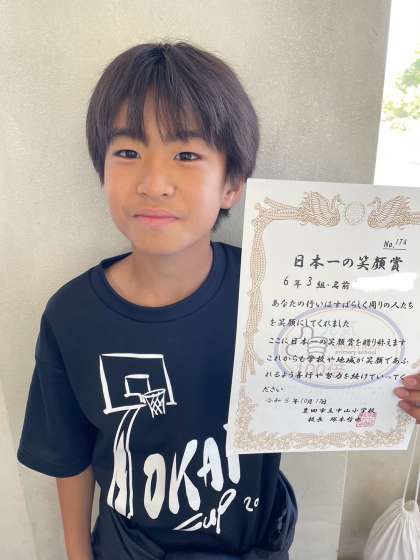 No. 174
日本一の笑顔賞
6年3組・名前
あなたの行いはすばらしく周りの人たち
を笑顔にしてくれました
ここに日本一の笑顔賞を贈り称えます
これからも学校や地域が笑顔であふ
れるよう善行や努力を続けていってく
ださい
令和5年10月17日
豊田市立中山小学校
校長
primary school
OKAI
CUP 20